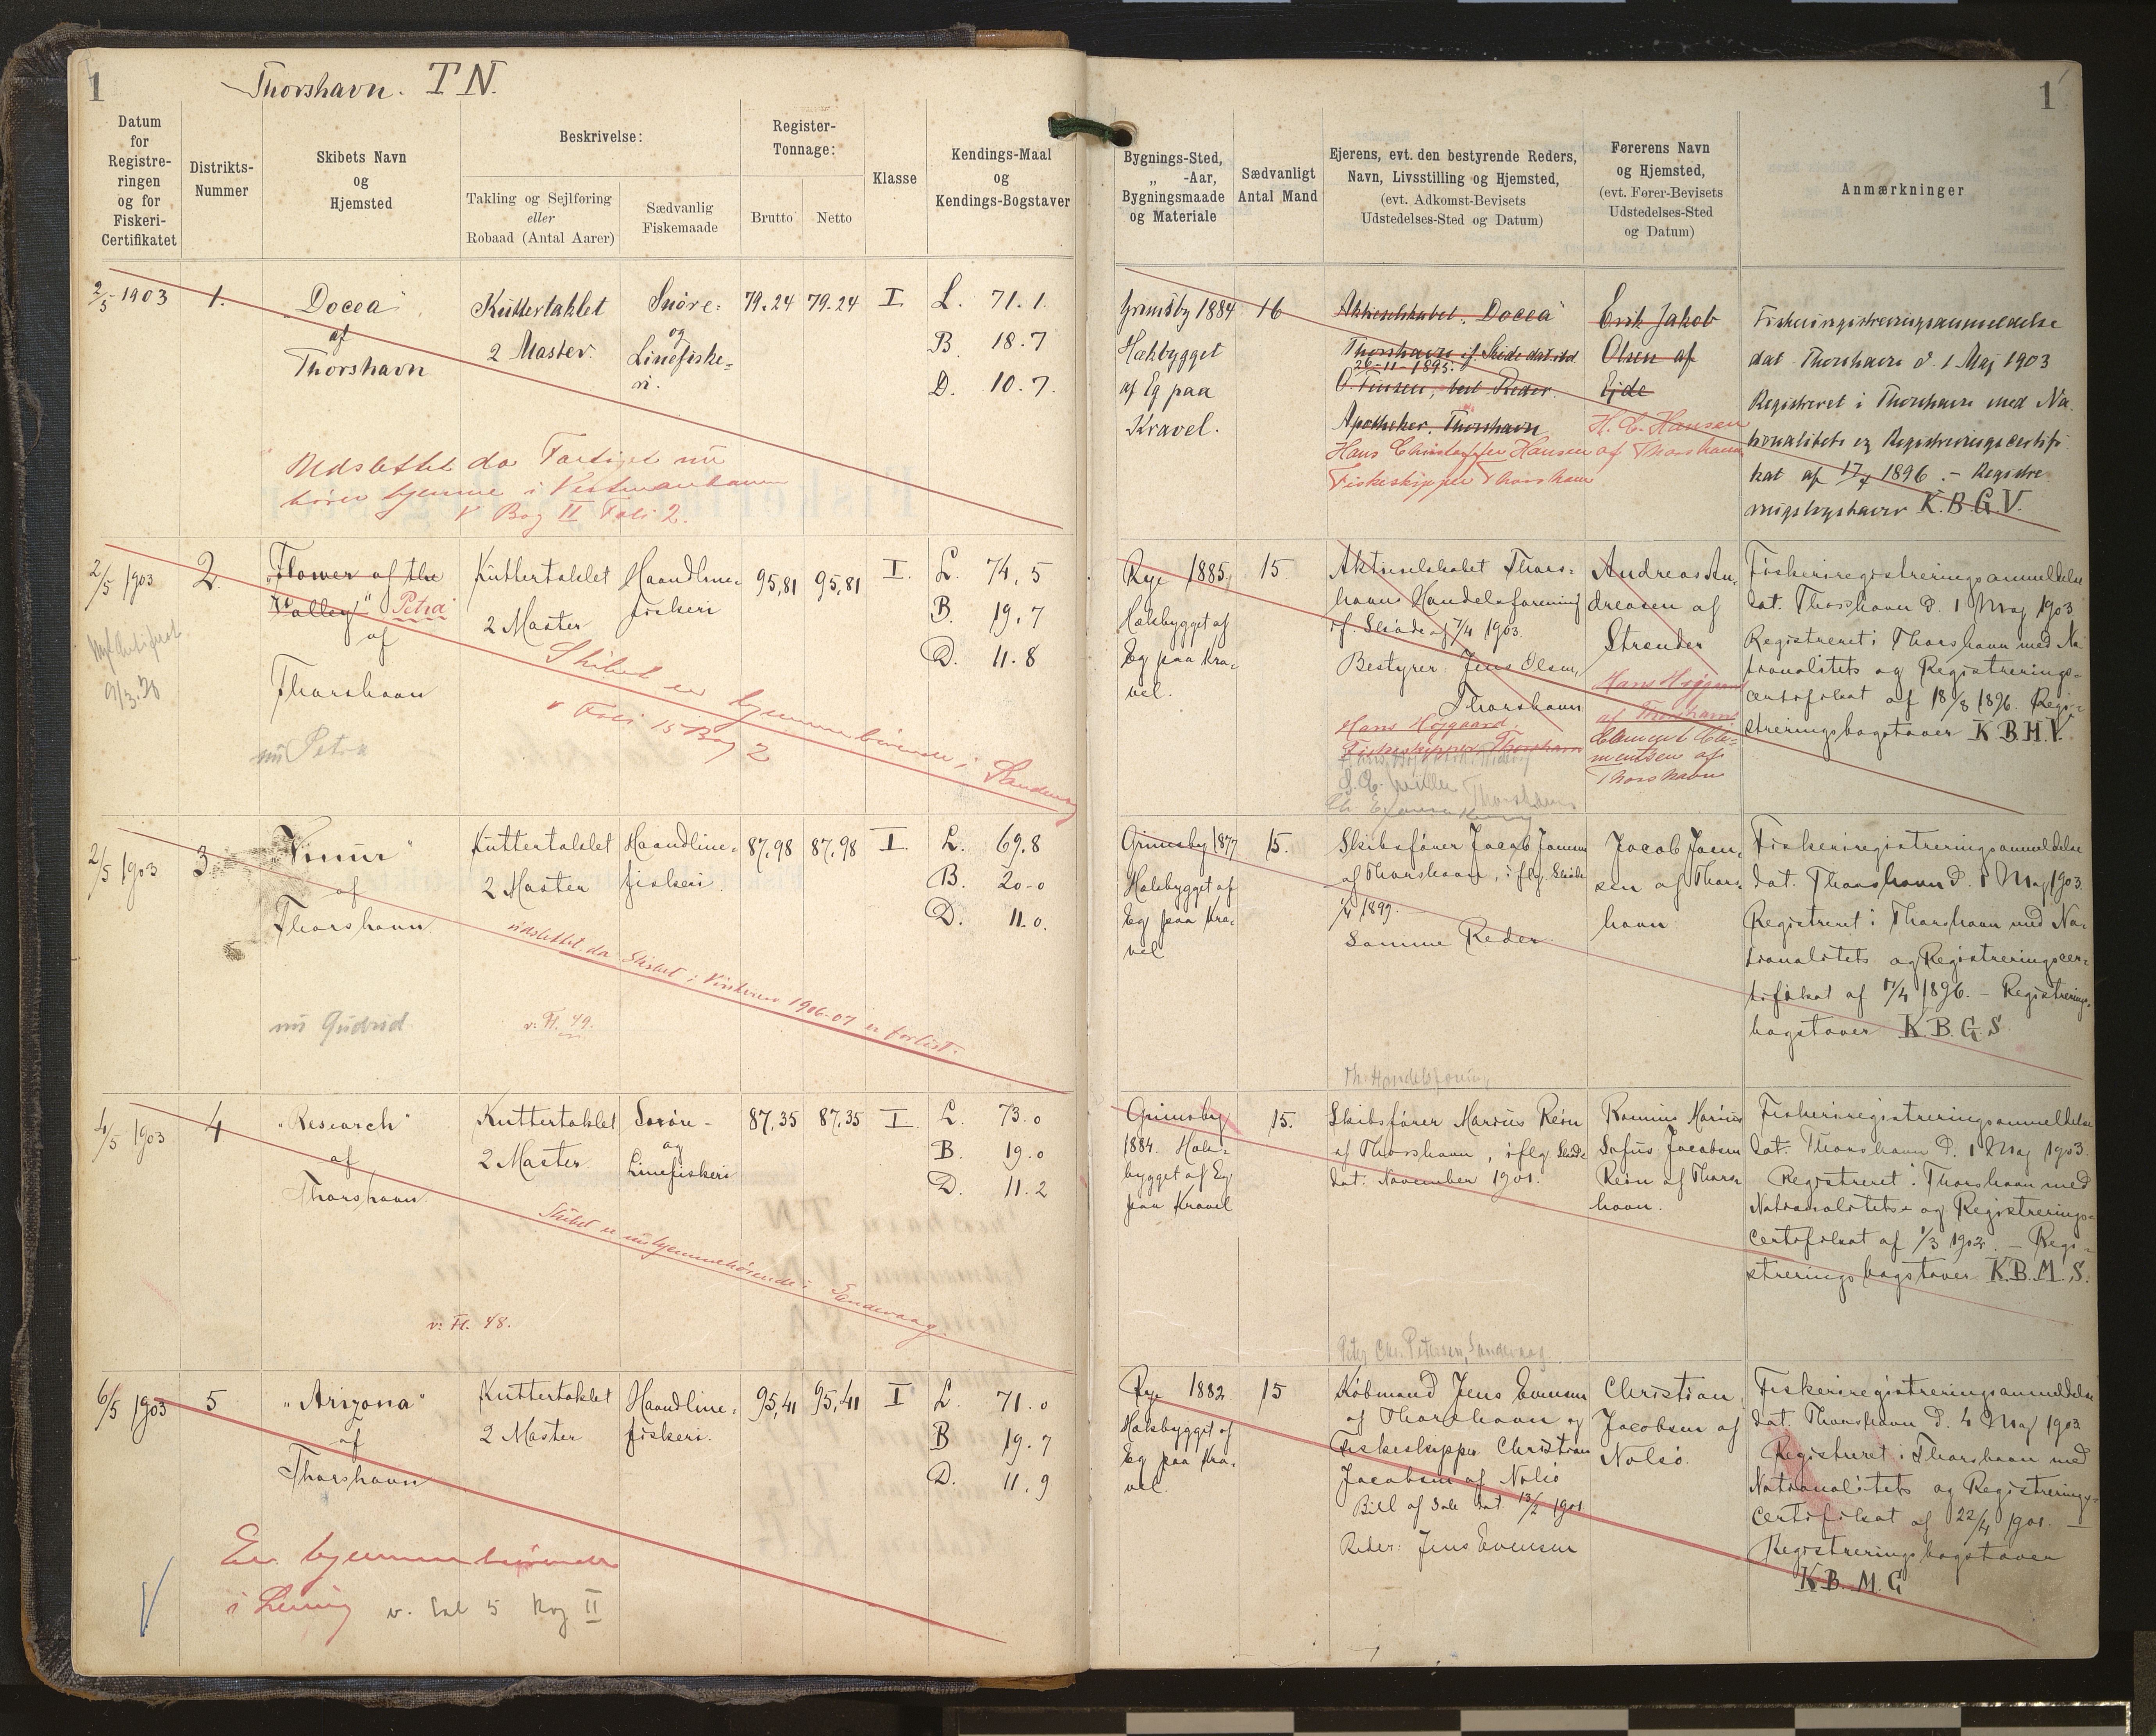 1
Thorshavn. TN.
1
Datum
for
Registre-
ringen
og for
Fiskeri-
Certifikatet
Distrikts-
Nummer
Skibets Navn
og
Hjemsted
Beskrivelse:
Takling og Sejlføring
eller
Robaad (Antal Aarer)
Sædvanlig
Fiskemaade
Register-
Tonnage:
Brutto
Netto
Klasse
Kendings-Maal
og
Kendings-Bogstaver
Bygnings-Sted,
„ -Aar,
Bygningsmaade
og Materiale
Sædvanligt
Antal Mand
Ejerens, evt. den bestyrende Reders,
Navn, Livsstilling og Hjemsted,
(evt. Adkomst-Bevisets
Udstedelses-Sted og Datum)
Førerens Navn
og Hjemsted,
(evt. Fører-Bevisets
Udstedelses-Sted
og Datum)
Anmærkninger
2/5 1903
1.
„Docea"
af
Thorshavn
Kuttertaklet
2 Master.
Snøre-
og
Linefiske-
ri.
79.24
79.24
I
L. 71.1
B. 18.7
D. 10.7.
Udslettet da Fartøjet nu
hører hjemme i Vestmanhavn
v Bog II Foli 2.
Grimsby 1884
Hækbygget
af Eg paa
Kravel.
16
Aktieselskabet „Docea"
Thorshavn if. Skøde dat.
26-11-1895.
O. Finsen, best. Reder.
Apotheker, Thorshavn
Hans Christoffer Hansen
Fiskeskipper Thorshavn
Erik Jakob
Olsen af
Ejde
H. C. Hansen
af Thorshavn
Fiskeriregistreringsanmeldelse
dat. Thorshavn d. 1 Maj 1903
Registreret i Thorshavn med Na-
tionalitets og Registreringscertifi-
kat af 17/4 1896. – Registre-
ringsbogstaver K.B.G.V.
2/5 1903
2.
„Flower of the
Valley" Petra
af
Thorshavn
nu Petra
9/3.20
Kuttertaklet
2 Master
Haandline-
fiskeri
95,81
95,81
I.
L. 74,5
B. 19,7
D. 11.8
Skibet er hjemmehørende i Sandevaag
v Foli 15 Bog 2
Rye 1885,
Hækbygget af
Eg paa Kra-
vel.
15
Aktieselskabet Thors-
havns Handelsforening
if. Skøde af 7/4 1903.
Bestyrer: Jens Olsen,
Thorshavn
Hans Højgaard
Fiskeskipper Thorshavn
Thorshavn
Andreas An-
dreasen af
Strender
Hans Højgaard
af Thorshavn
Clement Cle-
mentsen af
Thorshavn
Fiskeriregistreringsanmeldelse
dat. Thorshavn d. 1 Maj 1903
Registreret i Thorshavn med Na-
tionalitets og Registrerings-
certifikat af 18/8 1896. Regi-
streringsbogstaver K.B.H.V.
2/5 1903
3.
af
Thorshavn
nu Gudrid
Kuttertaklet
2 Master
v. Fl. 49.
Haandline-
fiskeri.
87,98
87,98
I.
L. 69.8
B. 20-0
D. 11.0.
udslettet, da Skibet i Vinteren 1906-07 er forlist.
Grimsby 1877
Hækbygget af
Eg paa Kra-
vel
15.
Skibsfører Jacob Joensen
af Thorshavn, iflg. Skøde
1/4 1899.
Samme Reder.
Th. Handelsforening
Jacob Joen-
sen af Thors-
havn
Fiskeriregistreringsanmeldelse
dat. Thorshavn d. 1 Maj 1903.
Registreret i Thorshavn med Na-
tionalitets og Registreringscer-
tifikat af 17/4 1896. – Registrerings-
bogstaver K.B.G.S
4/5 1903
4
„Research"
af
Thorshavn
Kuttertaklet
2 Master.
v. Fl. 48.
Snøre-
og
Linefiskeri
87,35
87,35
I
L. 73.0
B. 19.0
D. 11.2
Skibet er nu hjemmehørende i Sandevaag.
Grimsby
1884. Hæk-
bygget af Eg
paa Kravel
15.
Skibsfører Marius Rein
af Thorshavn, iflg. Skøde
dat. November 1901.
Peter Chr. Petersen, Sandevaag
Marius
Sofus Jacobsen
Rein af Thors-
havn.
Fiskeriregistreringsanmeldelse
dat. Thorshavn d. 1 Maj 1903.
Registreret i Thorshavn med
Nationalitets- og Registrerings-
certifikat af 1/3 1902. – Regi-
streringsbogstaver K.B.M.S.
6/5 1903
5
„Arizona"
af
Thorshavn
Kuttertaklet
2 Master
Haandline-
fiskeri.
95,41
95,41
I
L. 71.0
B 19.7
D. 11.9
Er hjemmehørende
i v. Fol 5 Bog II
Rye 1882
Hækbygget af
Eg paa Kra-
vel.
15
Købmand Jens Evensen
af Thorshavn og
Fiskeskipper Christian
Jacobsen af Nolsø
Bill of Sale dat. 13/2 1901
Reder: Jens Evensen
Christian
Jacobsen af
Nolsø.
Fiskeriregistreringsanmeldelse
dat. Thorshavn d. 4 Maj 1903
Registreret i Thorshavn med
Nationalitets og Registrerings-
certifikat af 22/4 1901. –
Registreringsbogstaver
K.B.M.G